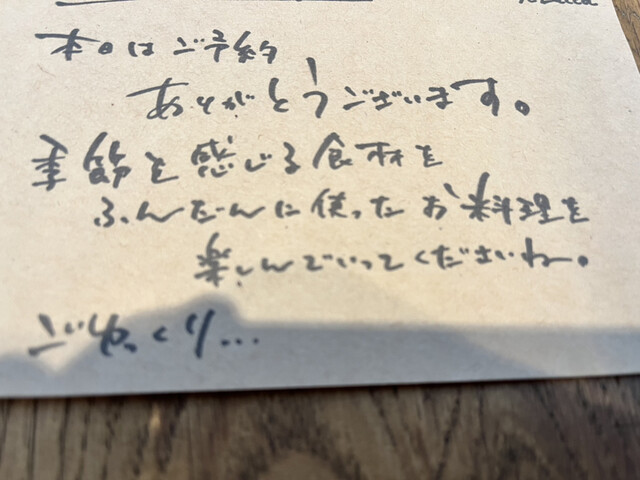 本日はご予約
ありがとうございます。
季節を感じる食材を
ふんだんに使ったお料理を
楽しんでいってくださいね。
ごゆっくり...